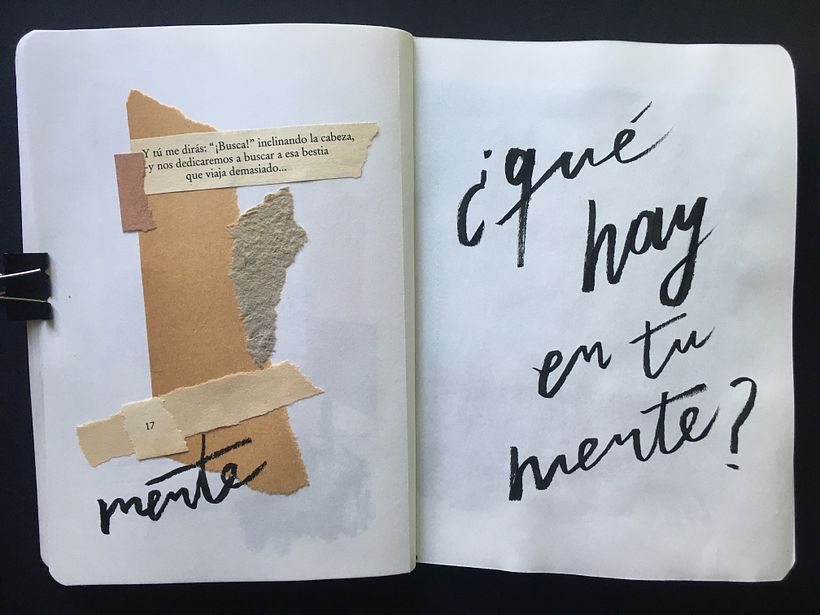 Y tú me dirás: "¡Busca!" inclinando la cabeza,
-y nos dedicaremos a buscar a esa bestia
que viaja demasiado...
17
mente
¿qué
hay
en tu
mente?